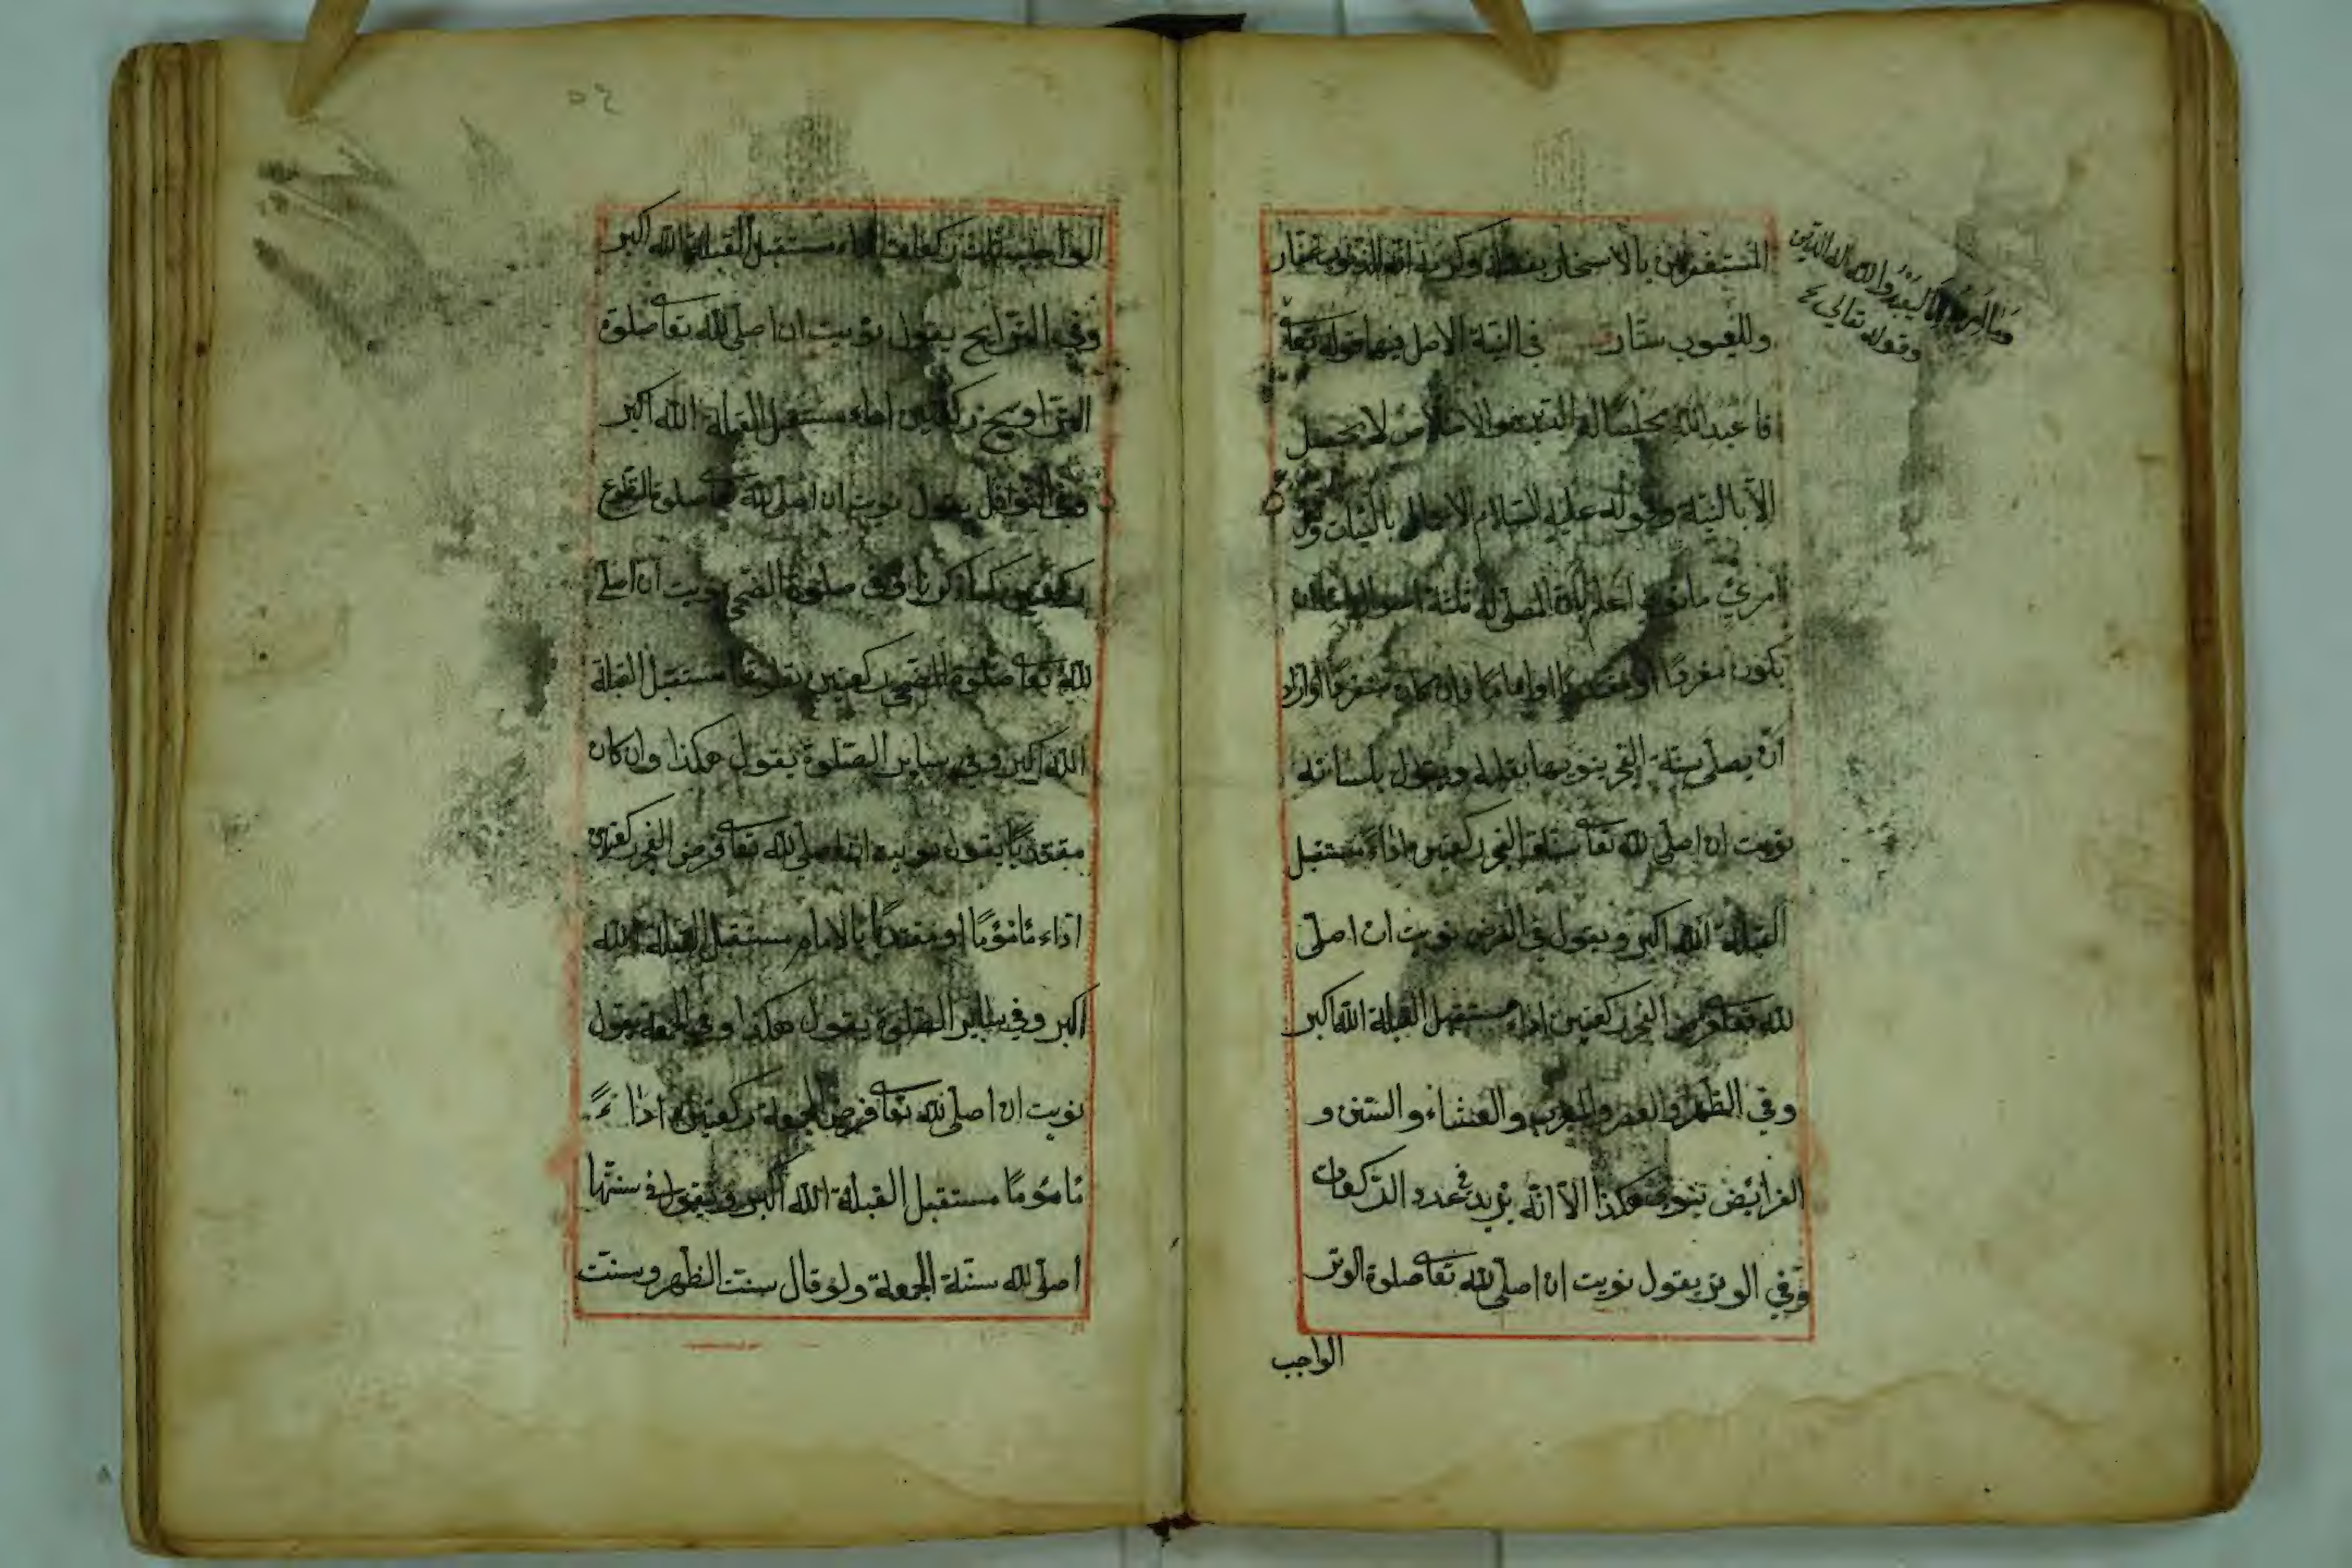 المستغفرين بالاسحار
وللعيوب ستار في النية الاصل فيها قوله تعا
فاعبد الله مخلصا له الدين والاخلاص لا يحصل
الا بالنية وقوله عليه السلام الاعمال بالنيات ولكل
امرئ ما نوى اعلم بان المصلي له ثلثة احوال اما ان
يكون مفردا او مقتديا او اماما فان كان مفردا واراد
ان يصلي سنة الفجر ينويها بقلبه ويقول بلسانه
نويت ان اصلي لله تعا سنة الفجر ركعتين اداء مستقبل
القبلة الله اكبر ويقول في الفرض نويت ان اصلي
لله تعا فرض الفجر ركعتين اداء مستقبل القبلة الله اكبر
وفي الظهر والعصر والمغرب والعشاء والسنن و
الفرائض ينوي هكذا الا انه يزيد في عدد الركعات
وفي الوتر يقول نويت ان اصلي لله تعا صلوة الوتر
الواجب
وما امروا الا ليعبدوا الله له الدين
وقوله تعالى
الواجبة ثلث ركعات اداء مستقبل القبلة الله اكبر
وفي التراويح يقول نويت ان اصلي لله تعا صلوة
التراويح ركعتين اداء مستقبل القبلة الله اكبر
وفي النوافل يقول نويت ان اصلي لله تعا صلوة التطوع
ركعتين كما ذكرنا وفي صلوة الضحى نويت ان اصلي
لله تعا صلوة الضحى ركعتين تطوعا مستقبل القبلة
الله اكبر وفي سائر الصلوة يقول هكذا وان كان
مقتديا يقول نويت ان اصلي لله تعا فرض الفجر ركعتين
اداء مأموما او مقتديا بالامام مستقبل القبلة الله
اكبر وفي سائر الصلوة يقول هكذا وفي الجمعة يقول
نويت ان اصلي لله تعا فرض الجمعة ركعتين اداء
مأموما مستقبل القبلة الله اكبر ويقول في سنتها
اصلي لله سنة الجمعة ولو قال سنت الظهر وسنت